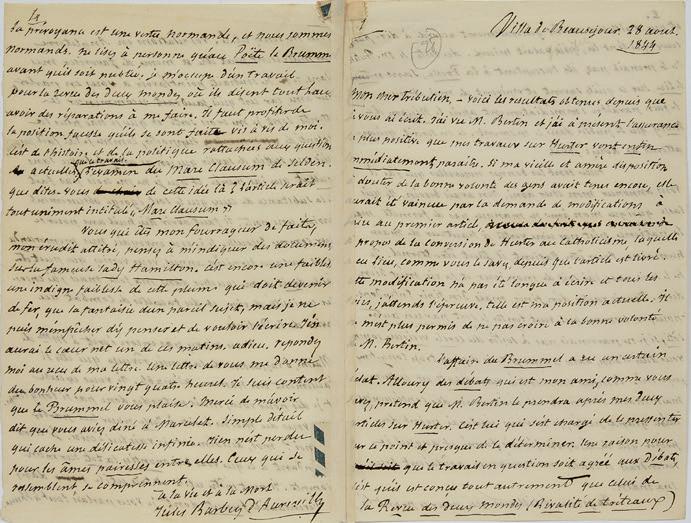 1
28
Villa de Beauséjour, 28 août
1844
mon cher tribution, – voici les resultats obtenus depuis que
vous ai écrit. J'ai vu M. Bertin et j'ai à présent l'assurance
plus positive que mes travaux sur Hurter vont enfin
immédiatement paraître. Si ma vieille et amère disposition
douter de la bonne volonté des gens avait tenu encore, el
aurait été vaincue par la demande de modifications à
au premier article,
propos de la conversion de Hurter au Catholicisme, laquelle
eu lieu, comme vous le savez, depuis que l'article est livré.
tte modification n'a pas été longue à écrire et tous les
j'attends l'épreuve, telle est ma position actuelle. Il
m'est plus permis de ne pas croire à la bonne volonté
M. Bertin.
L'affaire du Brummel a eu un certain
éclat. Adoury des débats qui est mon ami, comme vous
prétend que M. Bertin le prendra après mes deux
articles sur Hurter. C'est lui qui s'est chargé de le pressentir
sur ce point et presque de le déterminer. Une raison pour
que le travail en question soit agréé aux Débats,
c'est qu'il est conçu tout autrement que celui de
la Revue des deux mondes (Rivalité de tréteaux)
la prévoyance est une vertu normande, et nous sommes
normands. ne lisez à personne qu'au Poète le Brummel
avant qu'il soit publié. je m'occupe d'un travail
pour la revue des deux mondes où ils disent tout haut
avoir des réparations à me faire. Il faut profiter de
la position fausse qu'ils se sont faite vis à vis de moi.
C'est de l'histoire et de la politique rattachées aux question
actuelles, l'examen du Mare Clausum de Selden.
que dites-vous de cette idée là ? l'article serait
tout uniment intitulé, Mare Clausum ?
Vous qui êtes mon fourrageur de faits,
mon érudit attitré, pensez à m'indiquer des documens
sur la fameuse Lady Hamilton. C'est encore une faiblesse,
une indigne faiblesse de cette plume qui doit devenir
de fer, que la fantaisie d'un pareil sujet, mais je ne
puis m'empêcher d'y penser et de vouloir l'écrire. J'en
aurai le cœur net un de ces matins. adieu, répondez
moi au reçu de ma lettre. Une lettre de vous me donne
du bonheur pour vingt quatre heures. Je suis content
que le Brummel vous plaise. Merci de m'avoir
dit que vous aviez dîné à Marcelet. Simple détail
qui cache une délicatesse infinie. Rien n'est perdu
pour les âmes pairesses entre elles. Ceux qui se
ressemblent se comprennent.
à la vie et à la Mort
Jules Barbey d'Aurevilly